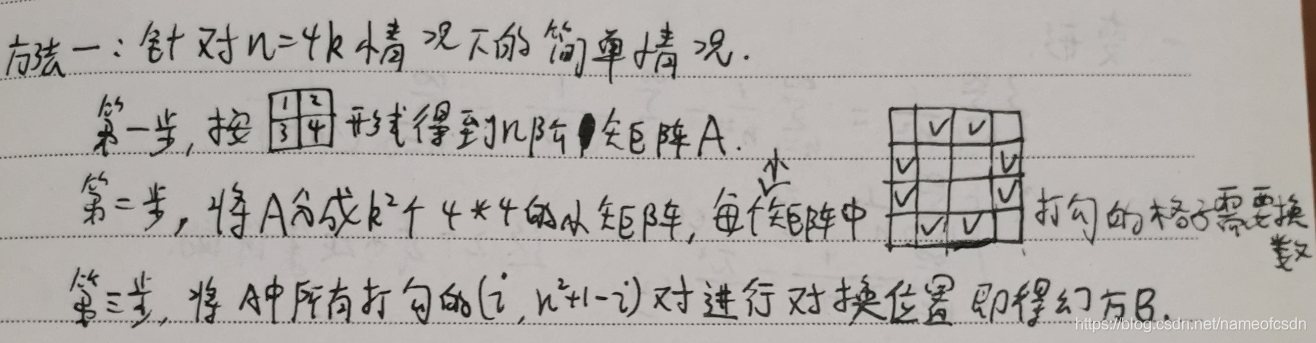 方法一：针对n=4k情况下的简单情况.
第一步，按 1 2 3 4 形式得到n阶矩阵A.
第二步，将A分成k²个4*4的小矩阵，每个小矩阵中 打勾的格子需要换数
第三步，将A中所有打勾的(i, n²+1-i)对进行对换位置即得幻方B.
https://blog.csdn.net/nameofcsdn